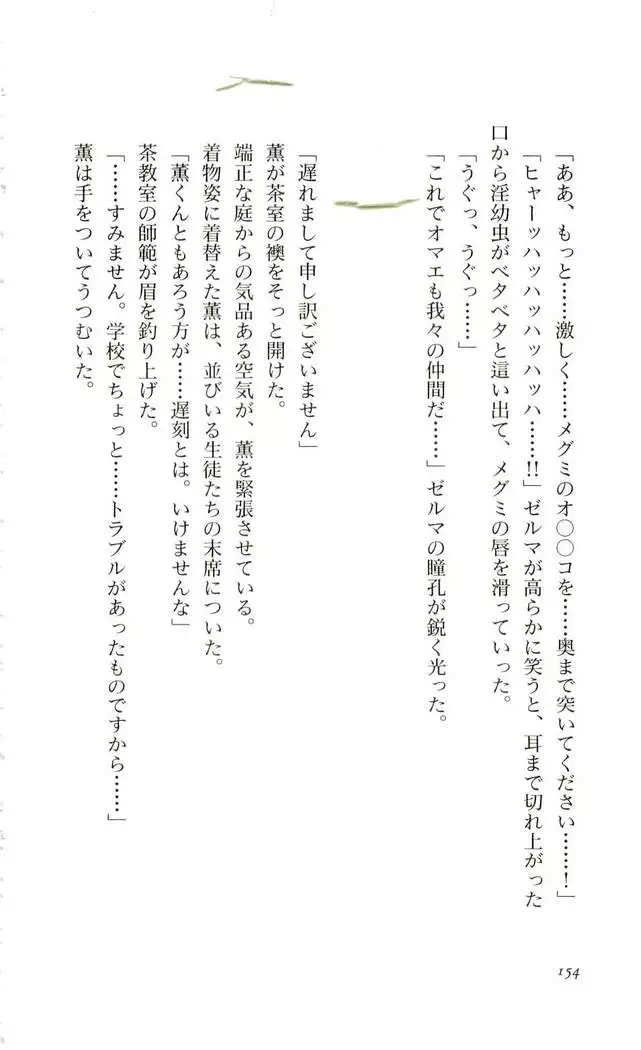 「ああ、もっと……激しく……メグミのオ○○コを……奥まで突いてください………！」
「ヒャーッハッハッハッハッハ……!!」ゼルマが高らかに笑うと、耳まで切れ上がった
口から淫幼虫がベタベタと這い出て、メグミの唇を滑っていった。
「うぐっ、うぐっ……」
「これでオマエも我々の仲間だ……」ゼルマの瞳孔が鋭く光った。
「遅れまして申し訳ございません」
薫が茶室の襖をそっと開けた。
端正な庭からの気品ある空気が、薫を緊張させている。
着物姿に着替えた薫は、並びいる生徒たちの末席についた。
「薫くんともあろう方が……遅刻とは。いけませんな」
茶教室の師範が眉を釣り上げた。
「……すみません。学校でちょっと……トラブルがあったものですから……」
薫は手をついてうつむいた。
154